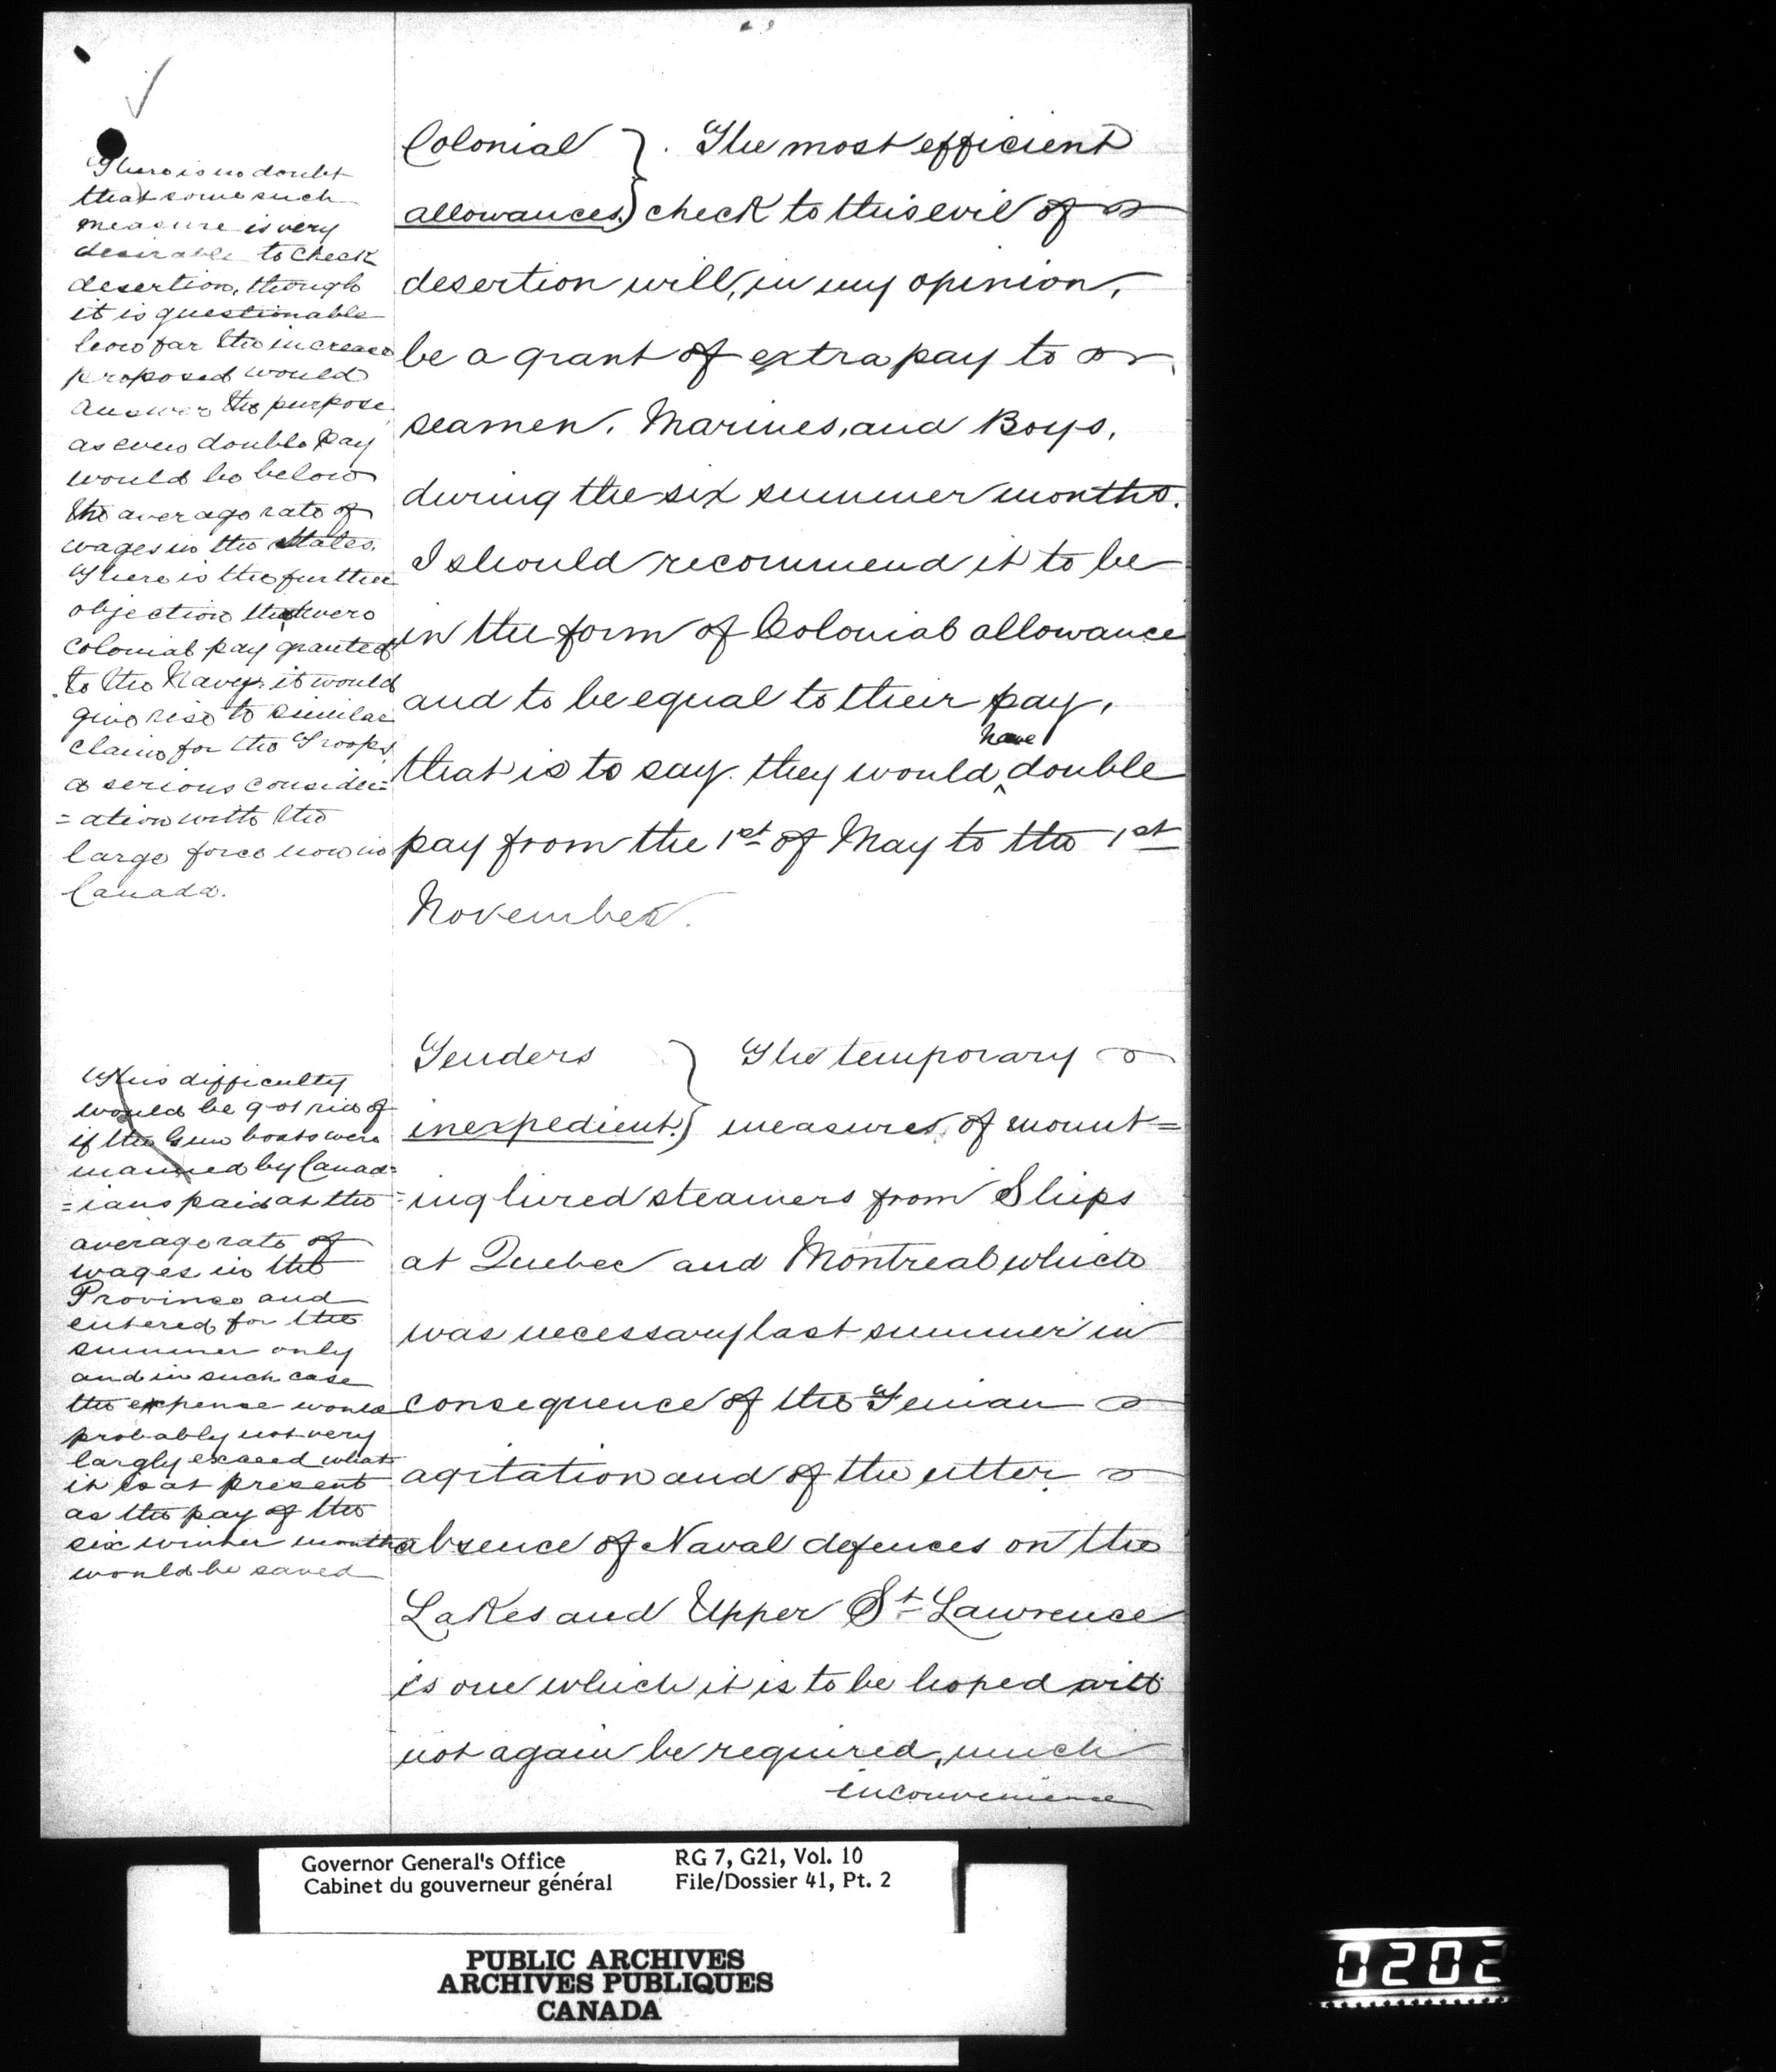 There is no doubt
that some such
measure is very
desirable to check
desertion, though
it is questionable
how far the increase
proposed would
answer the purpose
as even double pay
would be below
the average rate of
wages in the States.
There is the further
objection that were
colonial pay granted
to the Navy, it would
give rise to similar
claims for the Troops,
a serious consider=
=ation with the
large force now in
Canada.
Colonial } . The most efficient
allowances.) check to this evil of
desertion will, in my opinion,
be a grant of extra pay to
seamen, Marines, and Boys,
during the six summer months.
I should recommend it to be
in the form of Colonial allowance
and to be equal to their pay,
that is to say. they would have double
pay from the 1st of May to the 1st
November.
This difficulty
would be got rid of
if the Gun boats were
manned by Canad=
=ians paid at the
average rate of
wages in the
Province and
entered for the
summer only
and in such case
the expense would
probably not very
largly exceed what
it is at present
as the pay of the
six winter months
would be saved
Tenders } The temporary
inexpedient.) measures, of mount=
=ing hired steamers from Ships
at Quebec and Montreal which
was necessary last summer in
consequence of the Fenian
agitation and of the utter
absence of Naval defences on the
Lakes and Upper St Lawrence
is one which it is to be hoped will
not again be required, much
inconvenience
Governor General's Office RG 7, G21, Vol. 10
Cabinet du gouverneur général File/Dossier 41, Pt. 2
PUBLIC ARCHIVES
ARCHIVES PUBLIQUES
CANADA
0202